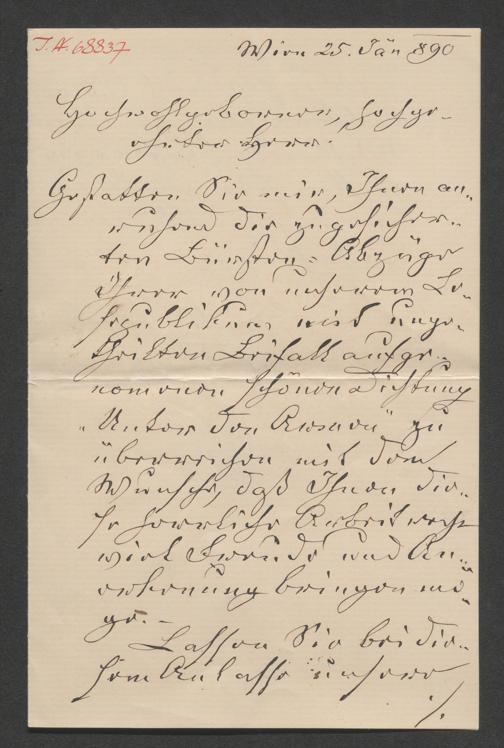 I.N. 68837
Wien 25. Jän 890
Hochwohlgeborner, hochge-
ehrter Herr.
Gestatten Sie mir, Ihnen an-
ruhend die zugesicher-
ten Bürsten-Abzüge
Ihrer von unserem Le-
sepublikum mit unge-
theiltem Beifall aufge-
nomenen schönen Dichtung
"Unter den Armen" zu
überreichen mit dem
Wunsche, daß Ihnen die-
se herrliche Arbeit recht
viel Freude und An-
erkenung bringen mö-
ge. –
Lassen Sie bei die-
sem Anlasse unsere
./.